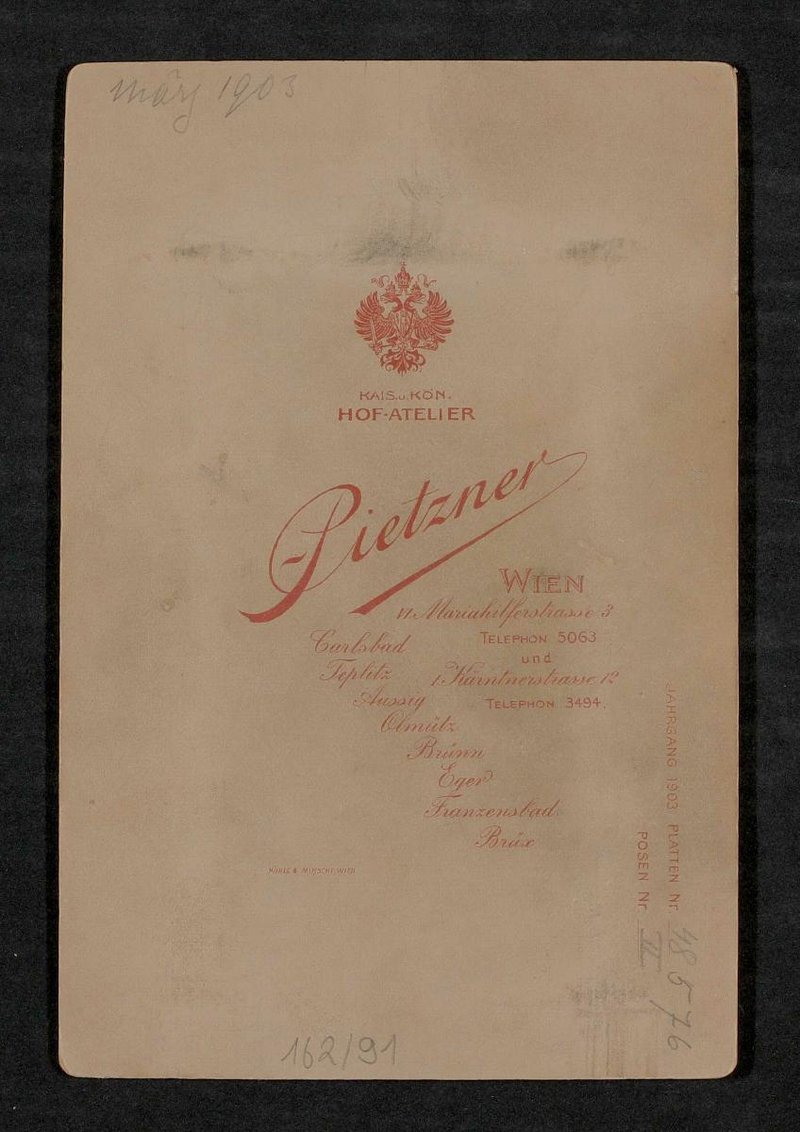 März 1903
KAIS. u. KÖN.
HOF-ATELIER
Pietzner
WIEN
VI. Mariahilferstrasse 3
TELEPHON 5063
und
I Kärntnerstrasse 12
TELEPHON 3494.
Carlsbad
Teplitz
Aussig
Olmütz
Brünn
Eger
Franzensbad
Brüx
JAHRGANG 1903 PLATTEN Nr. 48576
POSEN Nr. II
162/91